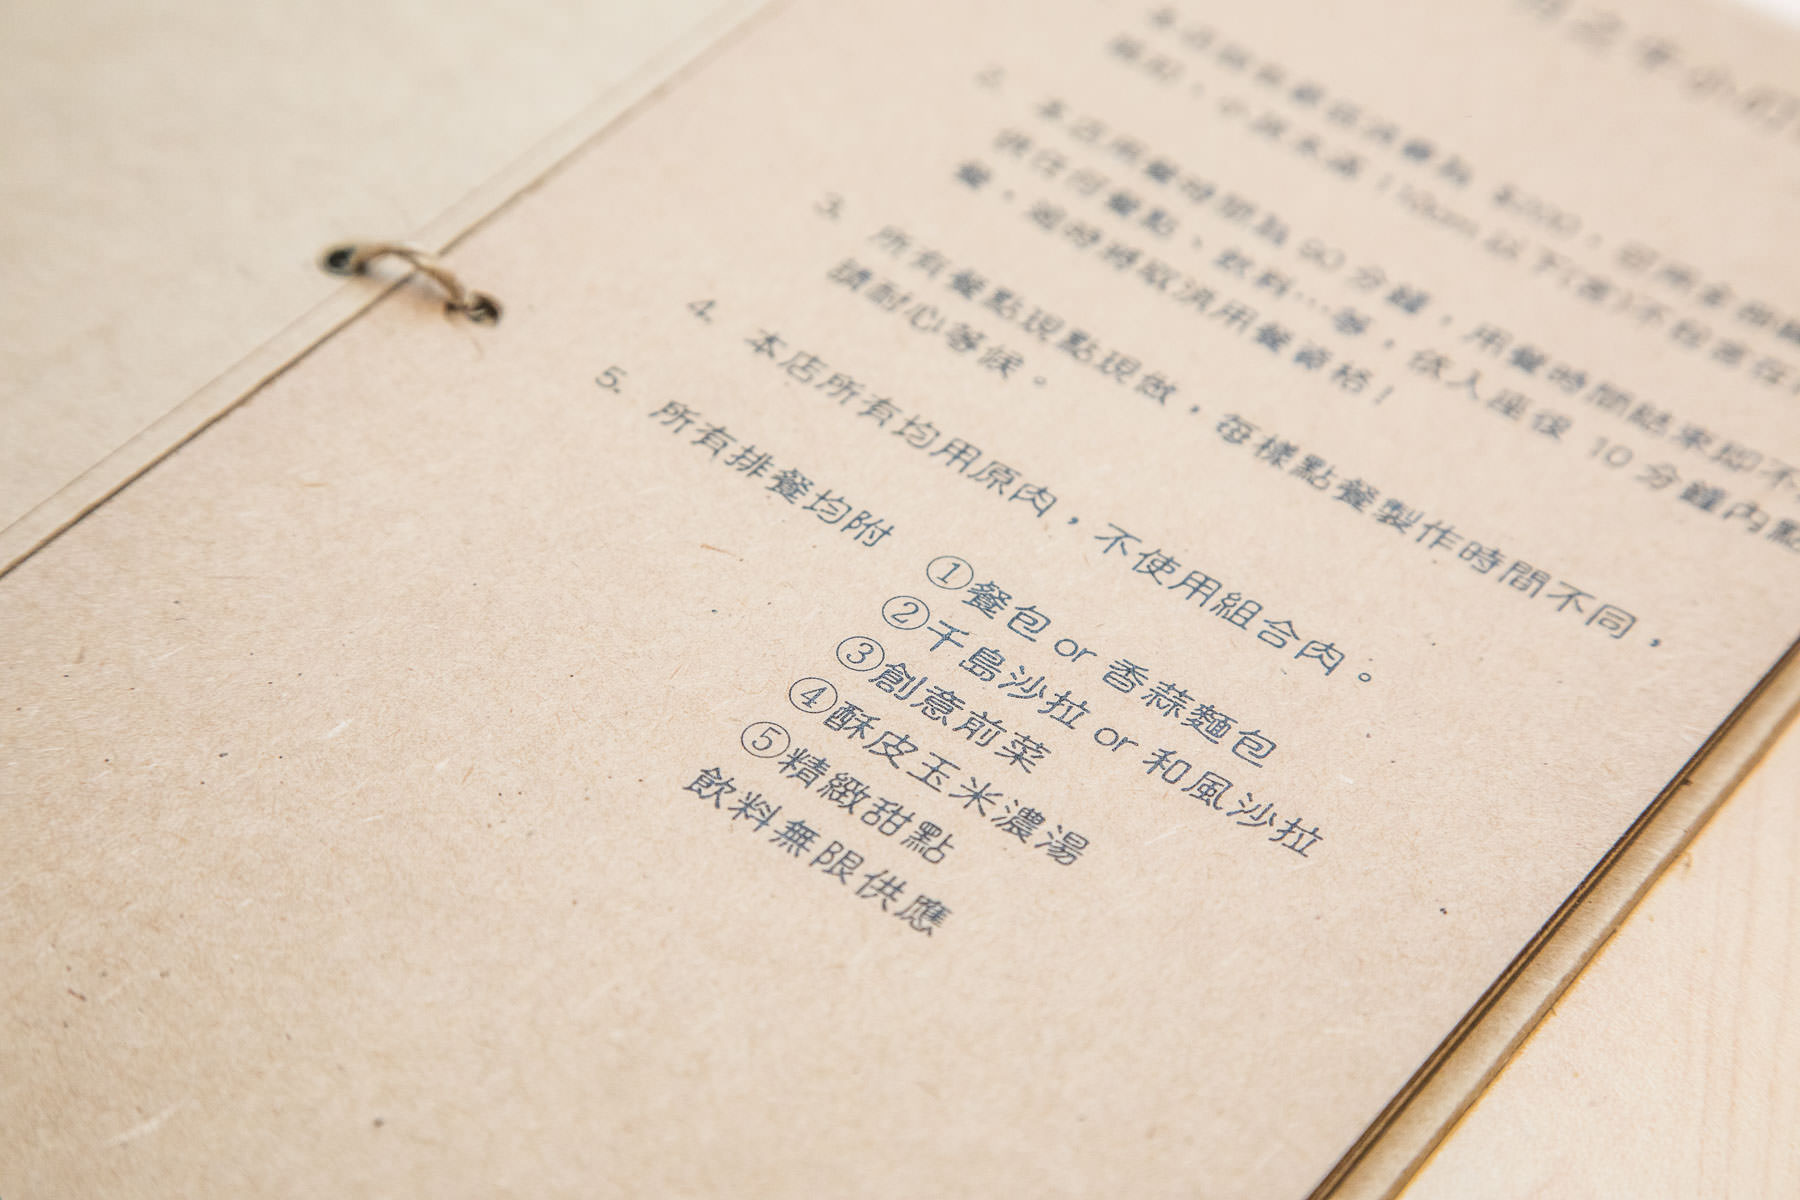 2. 本店用餐時間為 90 分鐘，用餐時間結束即不
供任何餐點、飲料…等，依入座後 10 分鐘內點
餐，逾時將取消用餐資格！
3. 所有餐點現點現做，每樣點餐製作時間不同，
請耐心等候。
4. 本店所有均用原肉，不使用組合肉。
5. 所有排餐均附 ①餐包 or 香蒜麵包
②千島沙拉 or 和風沙拉
③創意前菜
④酥皮玉米濃湯
⑤精緻甜點
飲料無限供應